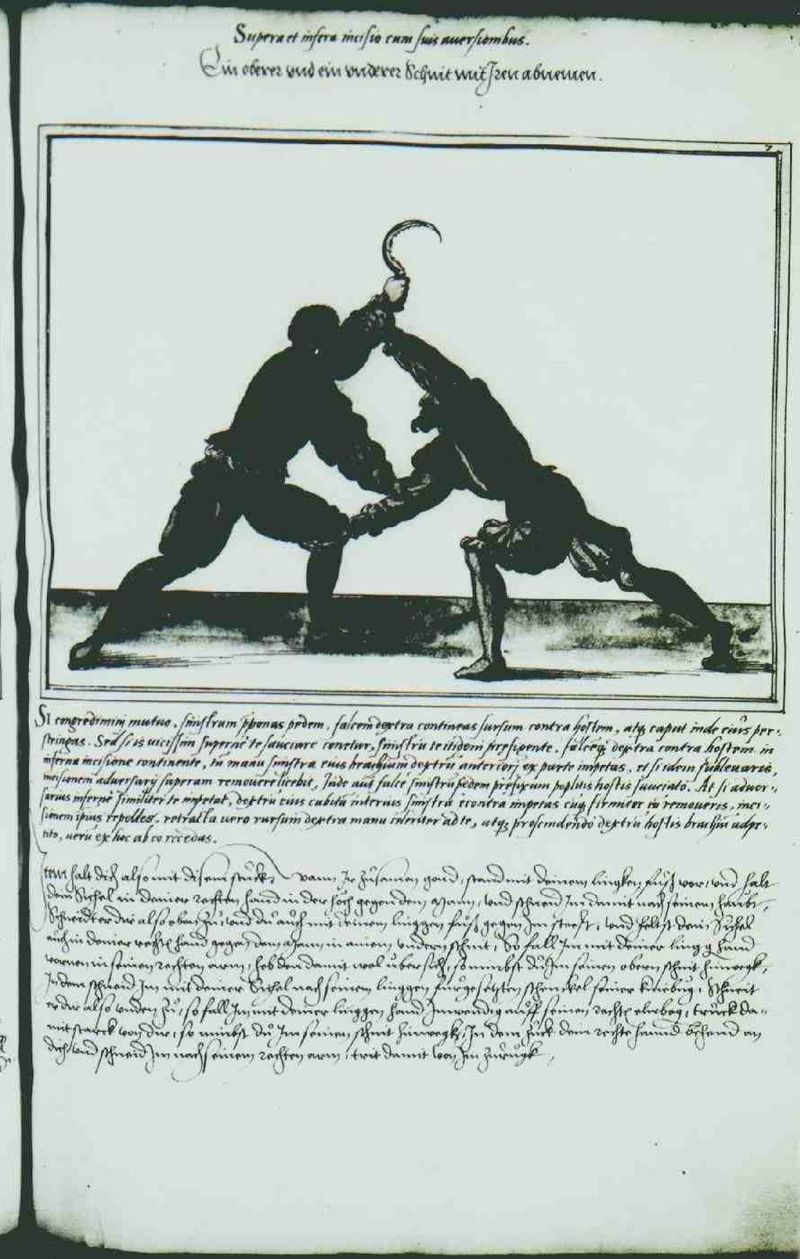 Supera et infera incisio cum suis aversionibus.
Ein oberer vnd ein vnderer Schnit mit Jren abnemen.
7
SI congredimini mutuo, sinistrum pponas pedem, falcem dextra contineas sursum contra hostem, atq caput inde eius per-
stringas. Sed si is vicissim superne te sauciare conetur, sinistru te itidem presigente, falceq dextra contra hostem in
inferna incisione continente, tu manu sinistra eius brachium dextru anteriori ex parte impetas, et si idem subleuaris,
incisionem aduersarij superam remouere licebit, Inde aut falce sinistru pedem prefixum poplitis hostis sauciato. At si aduer-
sarius inferne similiter te impetat, dextru eius cubitu internis sinistra econtra impetas eug firmiter si remoueris, inci-
sionem ipius repelles. retracta uero rursum dextra manu inferiter ad te, atq proscindendo dextru hostis brachiu adpe-
tito, ueru ex hoc ab eo recedas.
Item halt dich also mit disem stuck, wann Jr zusamen gond, so stand mit deinem linggen fuß vor, vnd halt
dein Sichel in deiner rechten hand in der höch gegen dem Mann, vnd schneid Jm damit nach seinem haubt,
Schneidt er dir also oben zu, vnd du auch mit deinem linggen fuß gegen Jm steest, vnd heltst dein Sichel
auch in deiner rechten hand gegen dem Mann in ainem vndern schnit, So fall Jm mit deiner lingg hand
vornen in seinen rechten arm, heb den damit wol übersich, so nimbst du Jm seinen obern schnit hinwegk,
Jndem schneid Jm mit deiner Sichel nach seinem linggen fürgesetzten schenckel seiner kniebug, Schneit
er dir also vnden zu, so fall Jm mit deiner linggen hand Jnwendig auff seinen rechten elnbog, truck da-
mit starck von dir, so nimbst du Jm seinen schnit hinwegk, Jn dem zuck dein rechte hannd behend an
dich, vnd schneid Jm nach seinem rechten arm, trit damit von Jm zurugk,